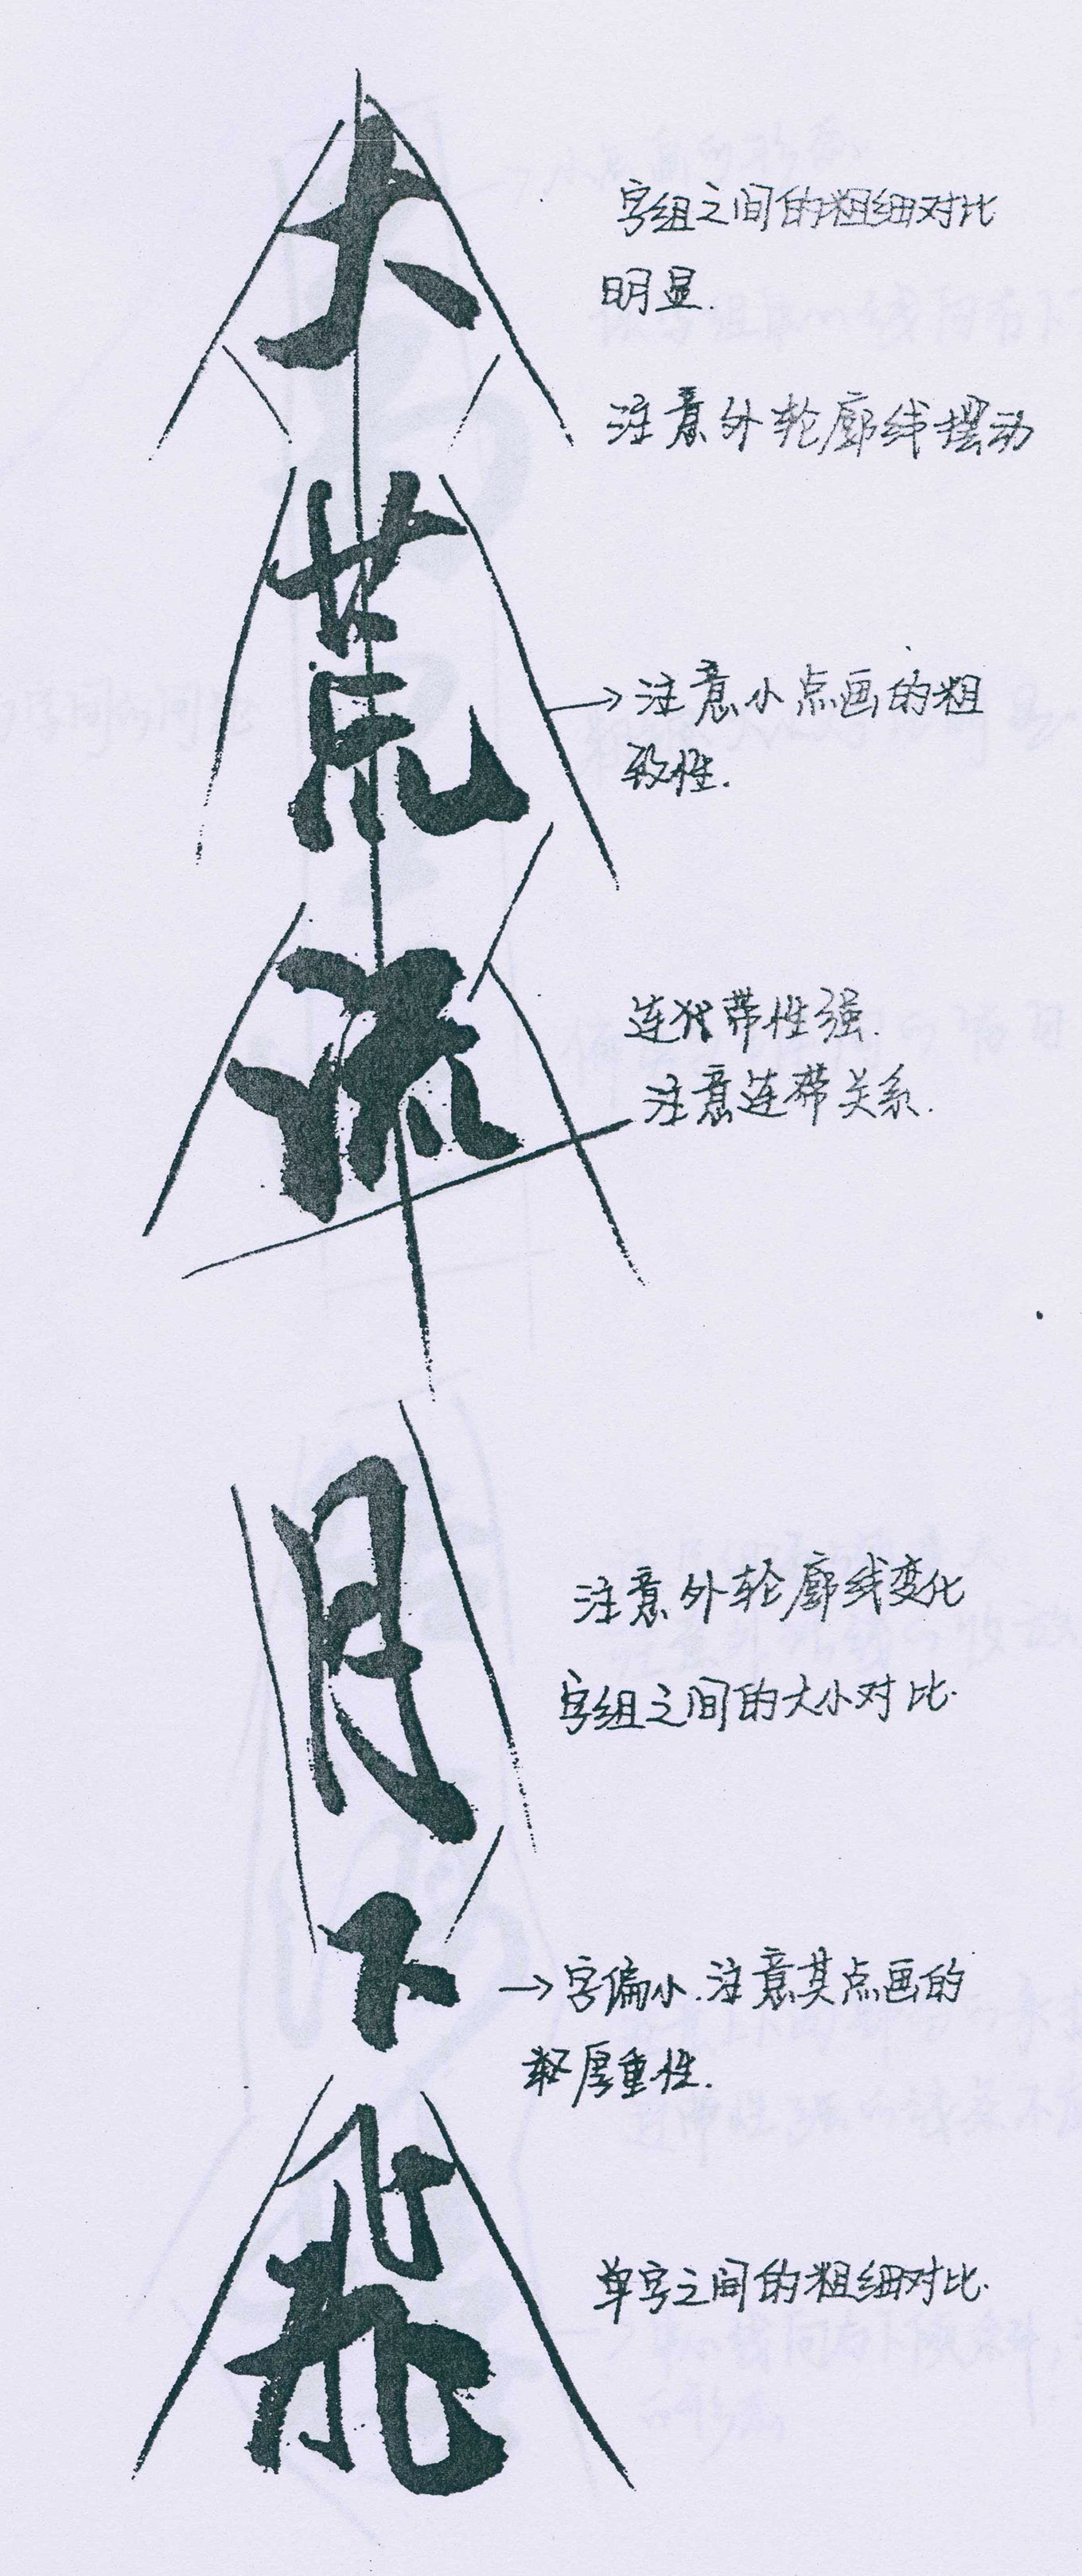 大
字组之间的粗细对比
明显.
注意外轮廓线摆动
荒
→注意小点画的粗
致性.
流
连带性强.
注意连带关系.
月
注意外轮廓线变化
字组之间的大小对比.
下
→字偏小.注意其点画的
厚重性.
飞
单字之间的粗细对比.